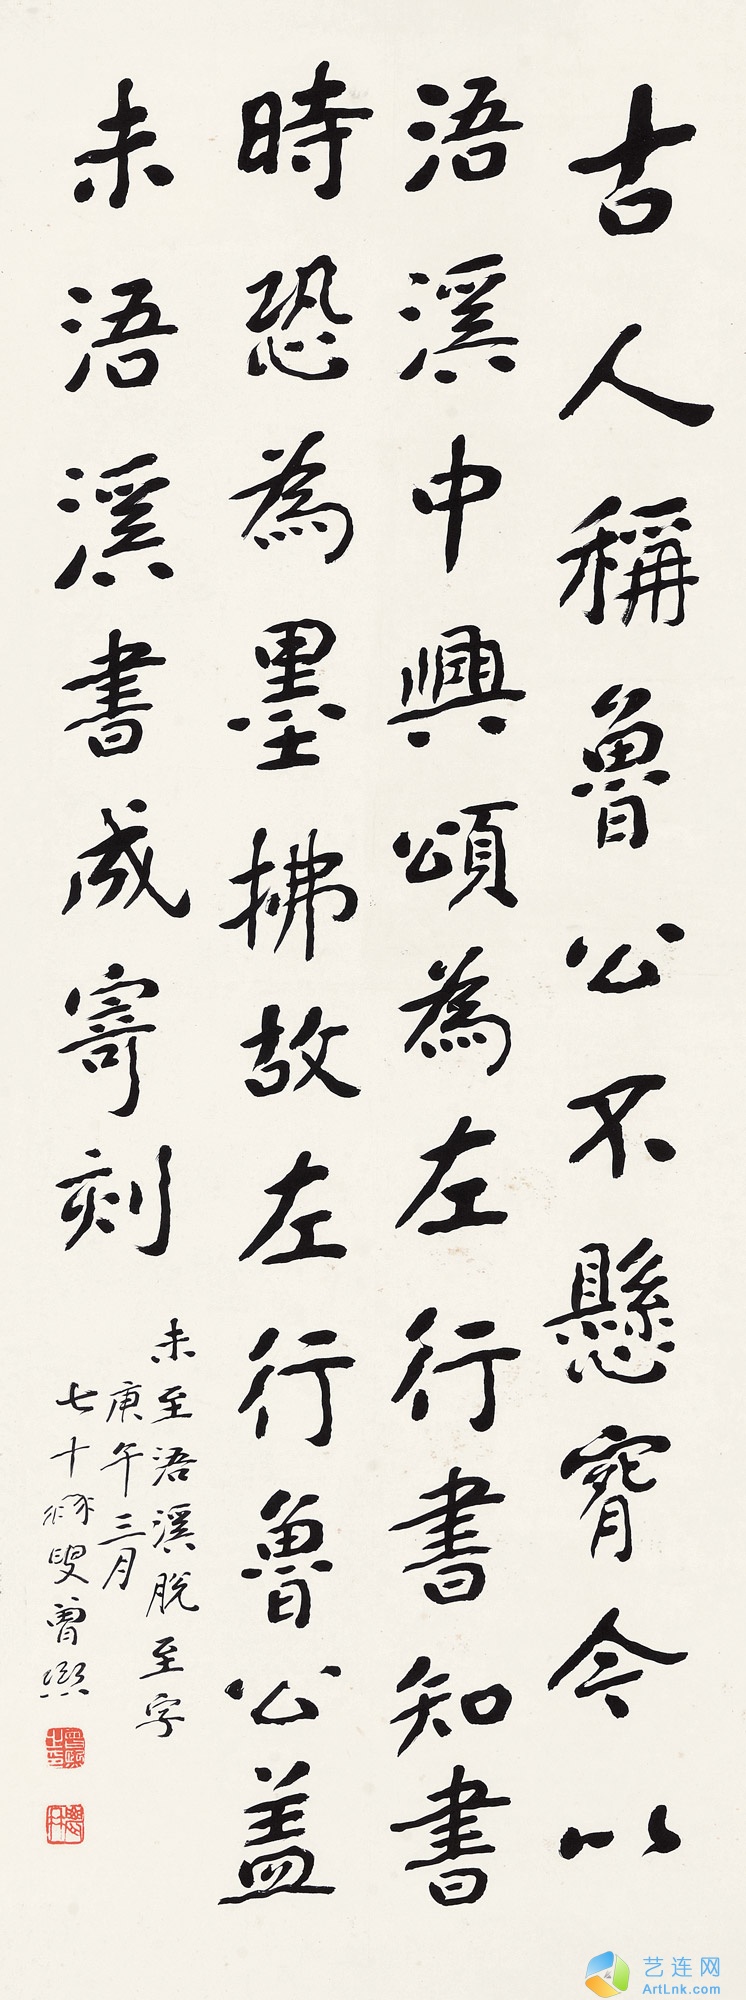 古人稱魯公不懸腕今以
浯溪中興頌為左行書知書
時恐為墨拂故左行魯公蓋
未浯溪書成寄刻
未至浯溪脫至字
庚午三月
七十叟曾熙
曾熙之印
艺连网
ArtLnk.com